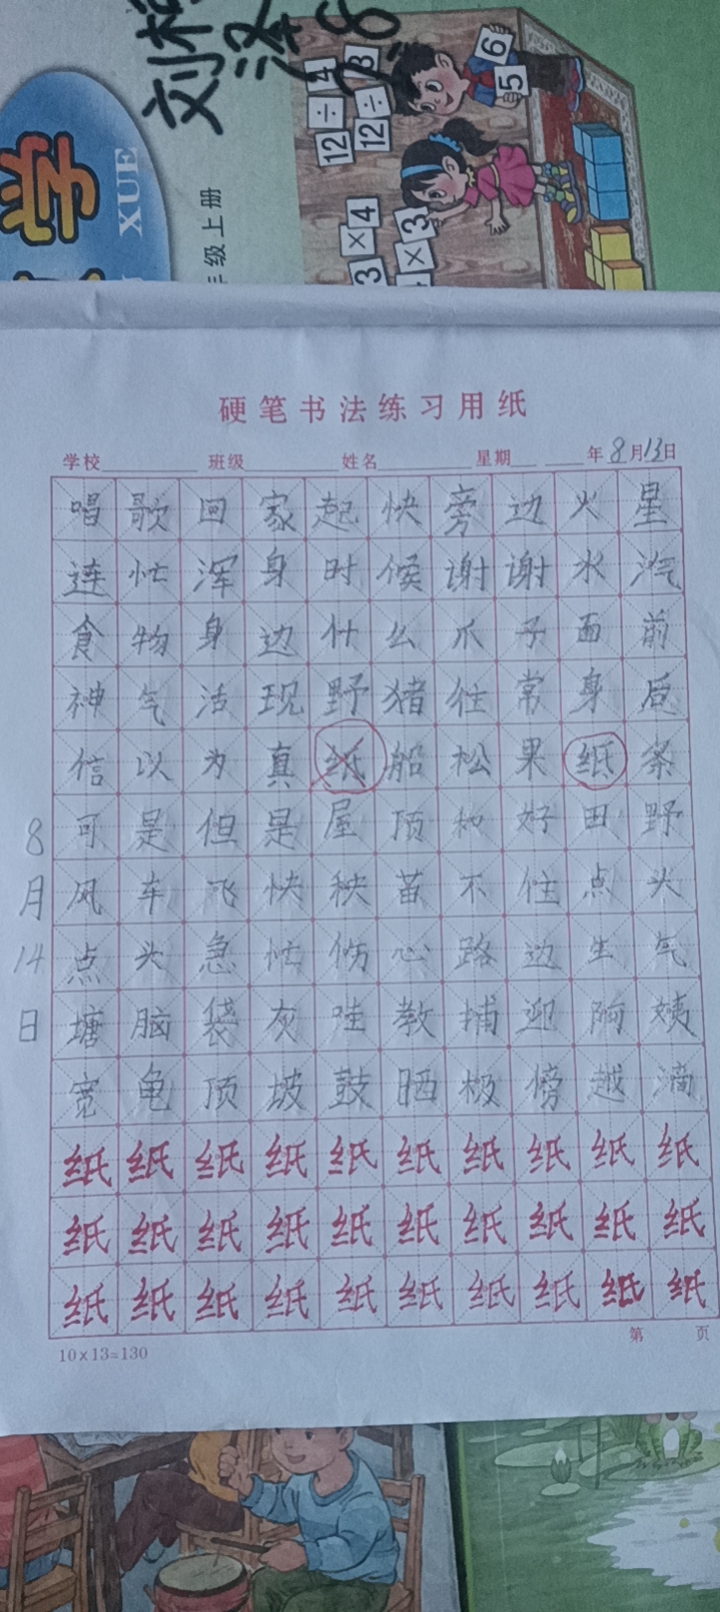 刘
学
XUE
级上册
12÷4
12÷3
6
5
3×4
×3
硬笔书法练习用纸
学校 班级 姓名 星期 年8月13日
唱歌回家起快旁边火星
连忙浑身时候谢谢水汽
食物身边什么爪子面前
神气活现野猪往常身后
信以为真纸船松果纸条
可是但是屋顶和好田野
风车飞快秧苗不住点头
点头急忙伤心路边生气
塘脑袋灰哇教捕迎阿姨
宽龟顶坡鼓晒极傍越滴
8月14日
纸纸纸纸纸纸纸纸纸纸
纸纸纸纸纸纸纸纸纸纸
纸纸纸纸纸纸纸纸纸纸
10×13=130
第 页